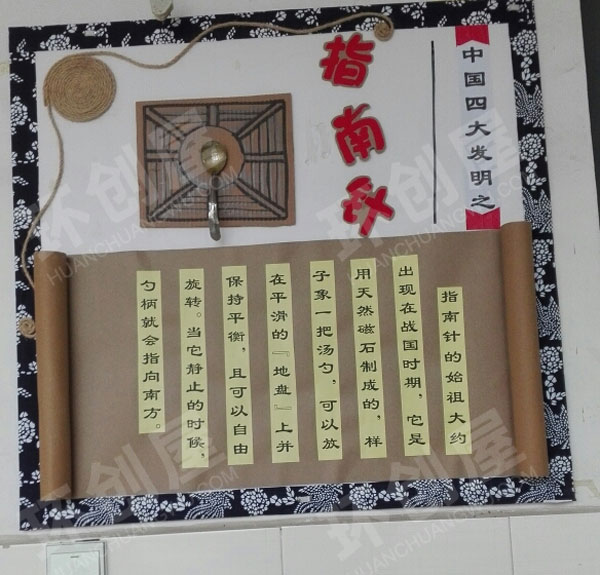 中国四大发明之
指南
指南针的始祖大约
出现在战国时期，它是
用天然磁石制成的，样
子象一把汤勺，可以放
在平滑的『地盘』上并
保持平衡，且可以自由
旋转。当它静止的时候，
勺柄就会指向南方。
环创屋
HUANCHUANGWU.COM
环创屋
HUANCHUANGWU.COM
环创屋
环创屋
HUANCHUANGWU.COM